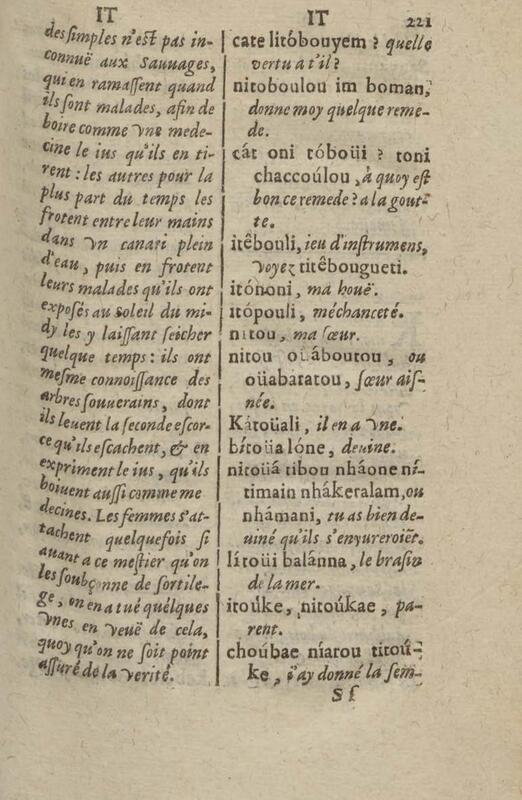 IT
IT
221
des ſimples n'eſt pas in-
connuë aux Sauuages,
qui en ramaſſent quand
ils ſont malades, afin de
boire comme vne mede-
cine le ius qu'ils en ti-
rent : les autres pour la
plus part du temps les
frotent entre leur mains
dans vn canari plein
d'eau, puis en frotent
leurs malades qu'ils ont
expoſés au Soleil du mi-
dy les y laiſſant ſeicher
quelque temps : ils ont
meſme connoiſſance des
arbres ſouuerains, dont
ils leuent la ſeconde eſcor-
ce qu'ils eſcachent, & en
expriment le ius, qu'ils
boiuent auſſi comme me
decines. Les femmes s'at-
tachent quelquefois ſi
auant a ce meſtier qu'on
les ſoubçonne de ſortile-
ge, on en a tué quelques
vnes en veuë de cela,
quoy qu'on ne ſoit point
aſſuré de la verité.
cate litóbouyem ? quelle
vertu a t'il ?
nitoboulou im boman,
donne moy quelque reme-
de.
cát oni tóboüi ? toni
chaccoúlou, à quoy eſt
bon ce remede ? a la gout-
te.
itêbouli, ieu d'inſtrumens,
voyez titêbougueti.
itónoni, ma houë.
itópouli, méchanceté.
nitou, ma ſœur.
nitou oüáboutou, ou
oüabaratou, ſœur aiſ-
née.
Kátoüali, il en a vne.
bítoüa lóne, deuine.
nitoüá tibou nháone ní-
timain nhákeralam, ou
nhámani, tu as bien de-
uiné qu'ils s'enyureroiẽt.
lítoüi balánna, le braſin
de la mer.
itoúke, nitoúkae, pa-
rent.
choúbae níarou titoú-
ke, i'ay donné la ſem-
S ſ